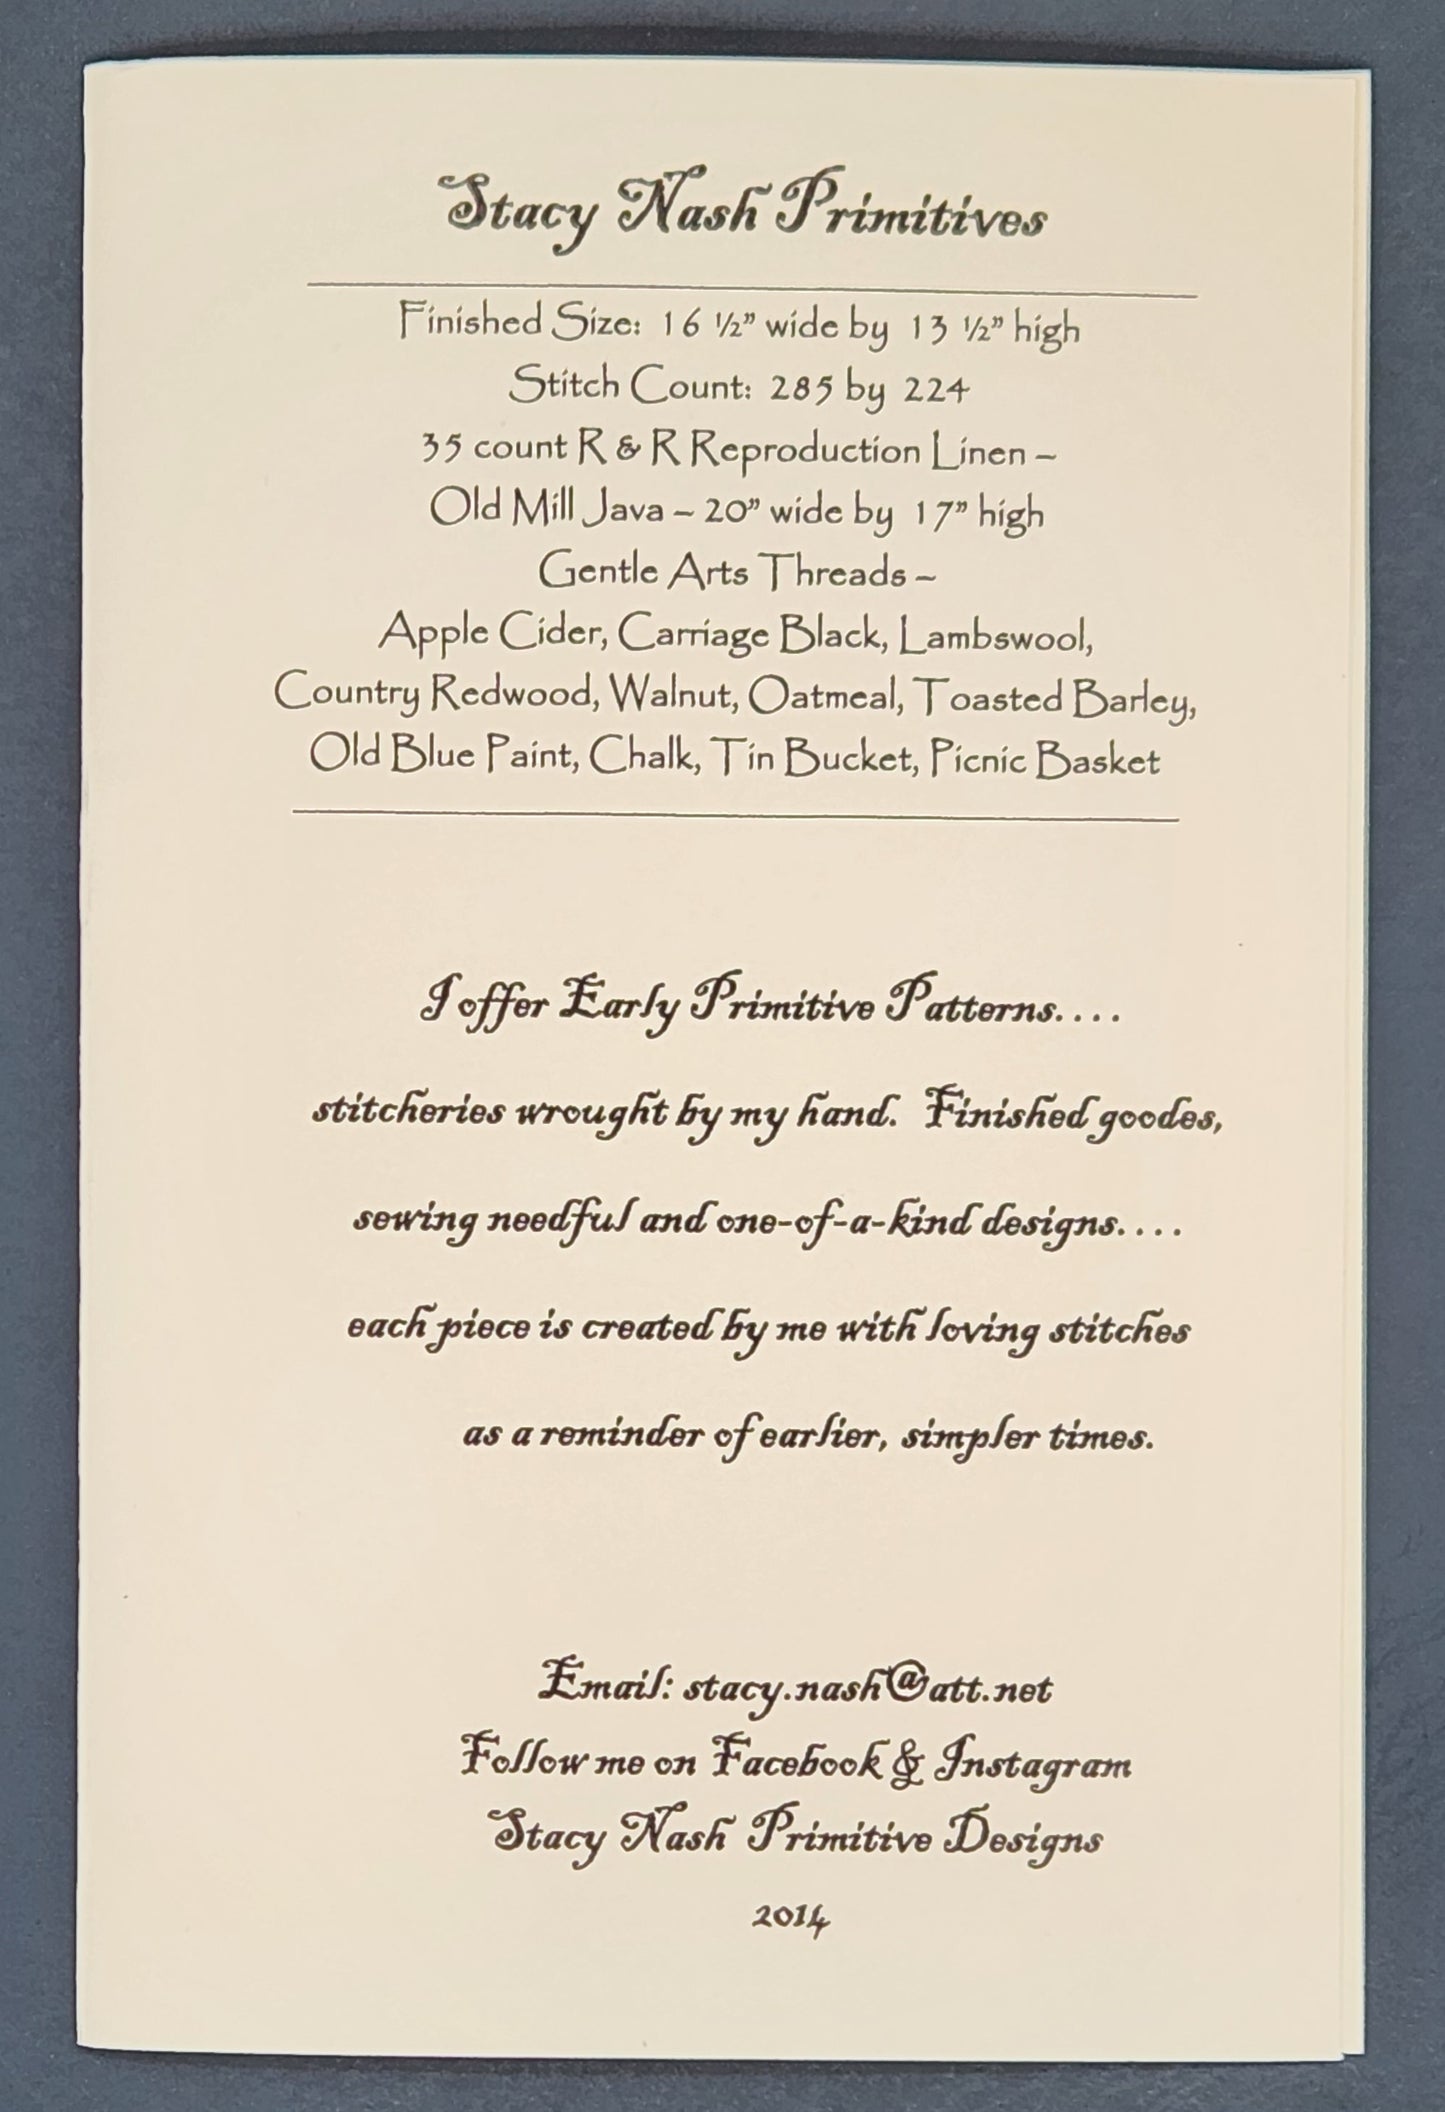 Stacy Nash Primitives
Finished Size: 16 ½” wide by 13 ½” high
Stitch Count: 285 by 224
35 count R & R Reproduction Linen ~
Old Mill Java ~ 20” wide by 17” high
Gentle Arts Threads ~
Apple Cider, Carriage Black, Lambswool,
Country Redwood, Walnut, Oatmeal, Toasted Barley,
Old Blue Paint, Chalk, Tin Bucket, Picnic Basket
I offer Early Primitive Patterns....
stitcheries wrought by my hand. Finished goodes,
sewing needful and one-of-a-kind designs....
each piece is created by me with loving stitches
as a reminder of earlier, simpler times.
Email: stacy.nash@att.net
Follow me on Facebook & Instagram
Stacy Nash Primitive Designs
2014